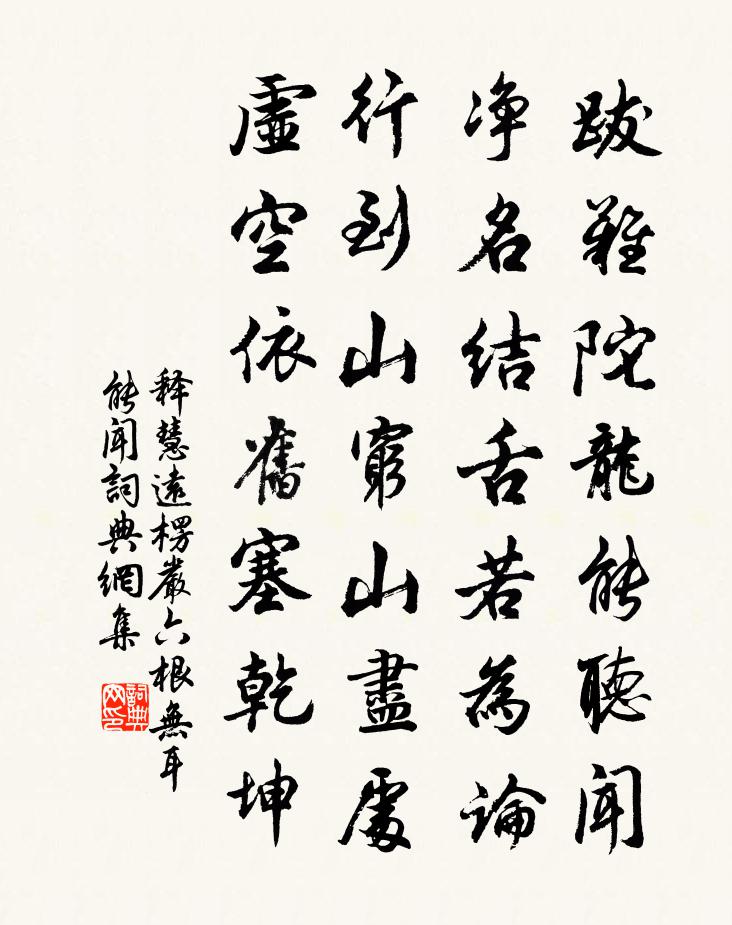 跋難陀龍能聽聞
净名結舌若為論
行到山窮山盡處
虛空依舊塞乾坤
释慧遠楞嚴六根無耳
能聞詞典網集
詞典
网印